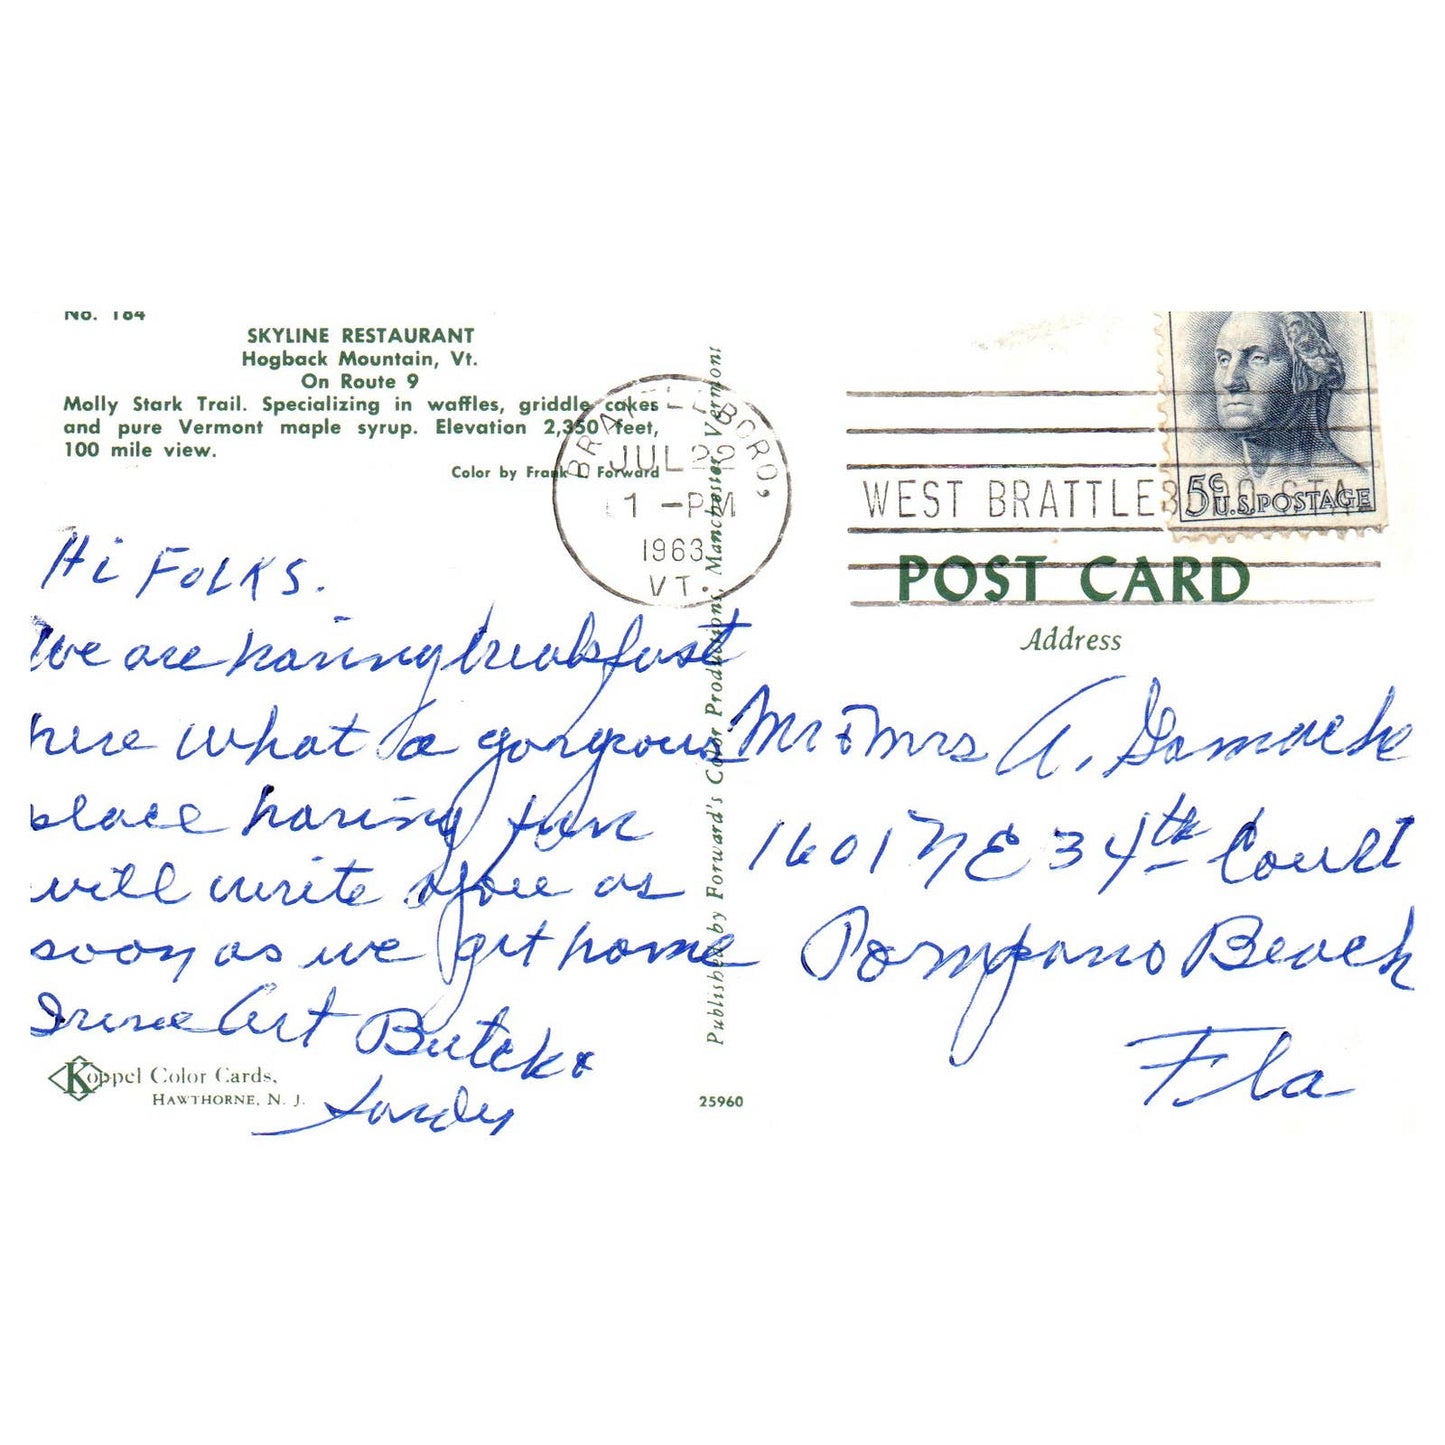 No. 184
SKYLINE RESTAURANT
Hogback Mountain, Vt.
On Route 9
Molly Stark Trail. Specializing in waffles, griddle cakes
and pure Vermont maple syrup. Elevation 2,350 feet,
100 mile view.
Color by Frank L Forward
Hi FOLKS.
We are having breakfast
here what a gorgeous
place having fun
will write you as
soon as we get home
Irene Art Butch &
Koppel Color Cards,
HAWTHORNE, N. J.
Published by Forward's Color Productions, Manchester, Vermont
25960
BRATTLEBORO,
JUL 22
1 -PM
1963
VT.
WEST BRATTLEBORO STA.
5¢
U.S. POSTAGE
POST CARD
Address
Mr & Mrs A. Gamache
1601 NE 34th Court
Pompano Beach
Fla